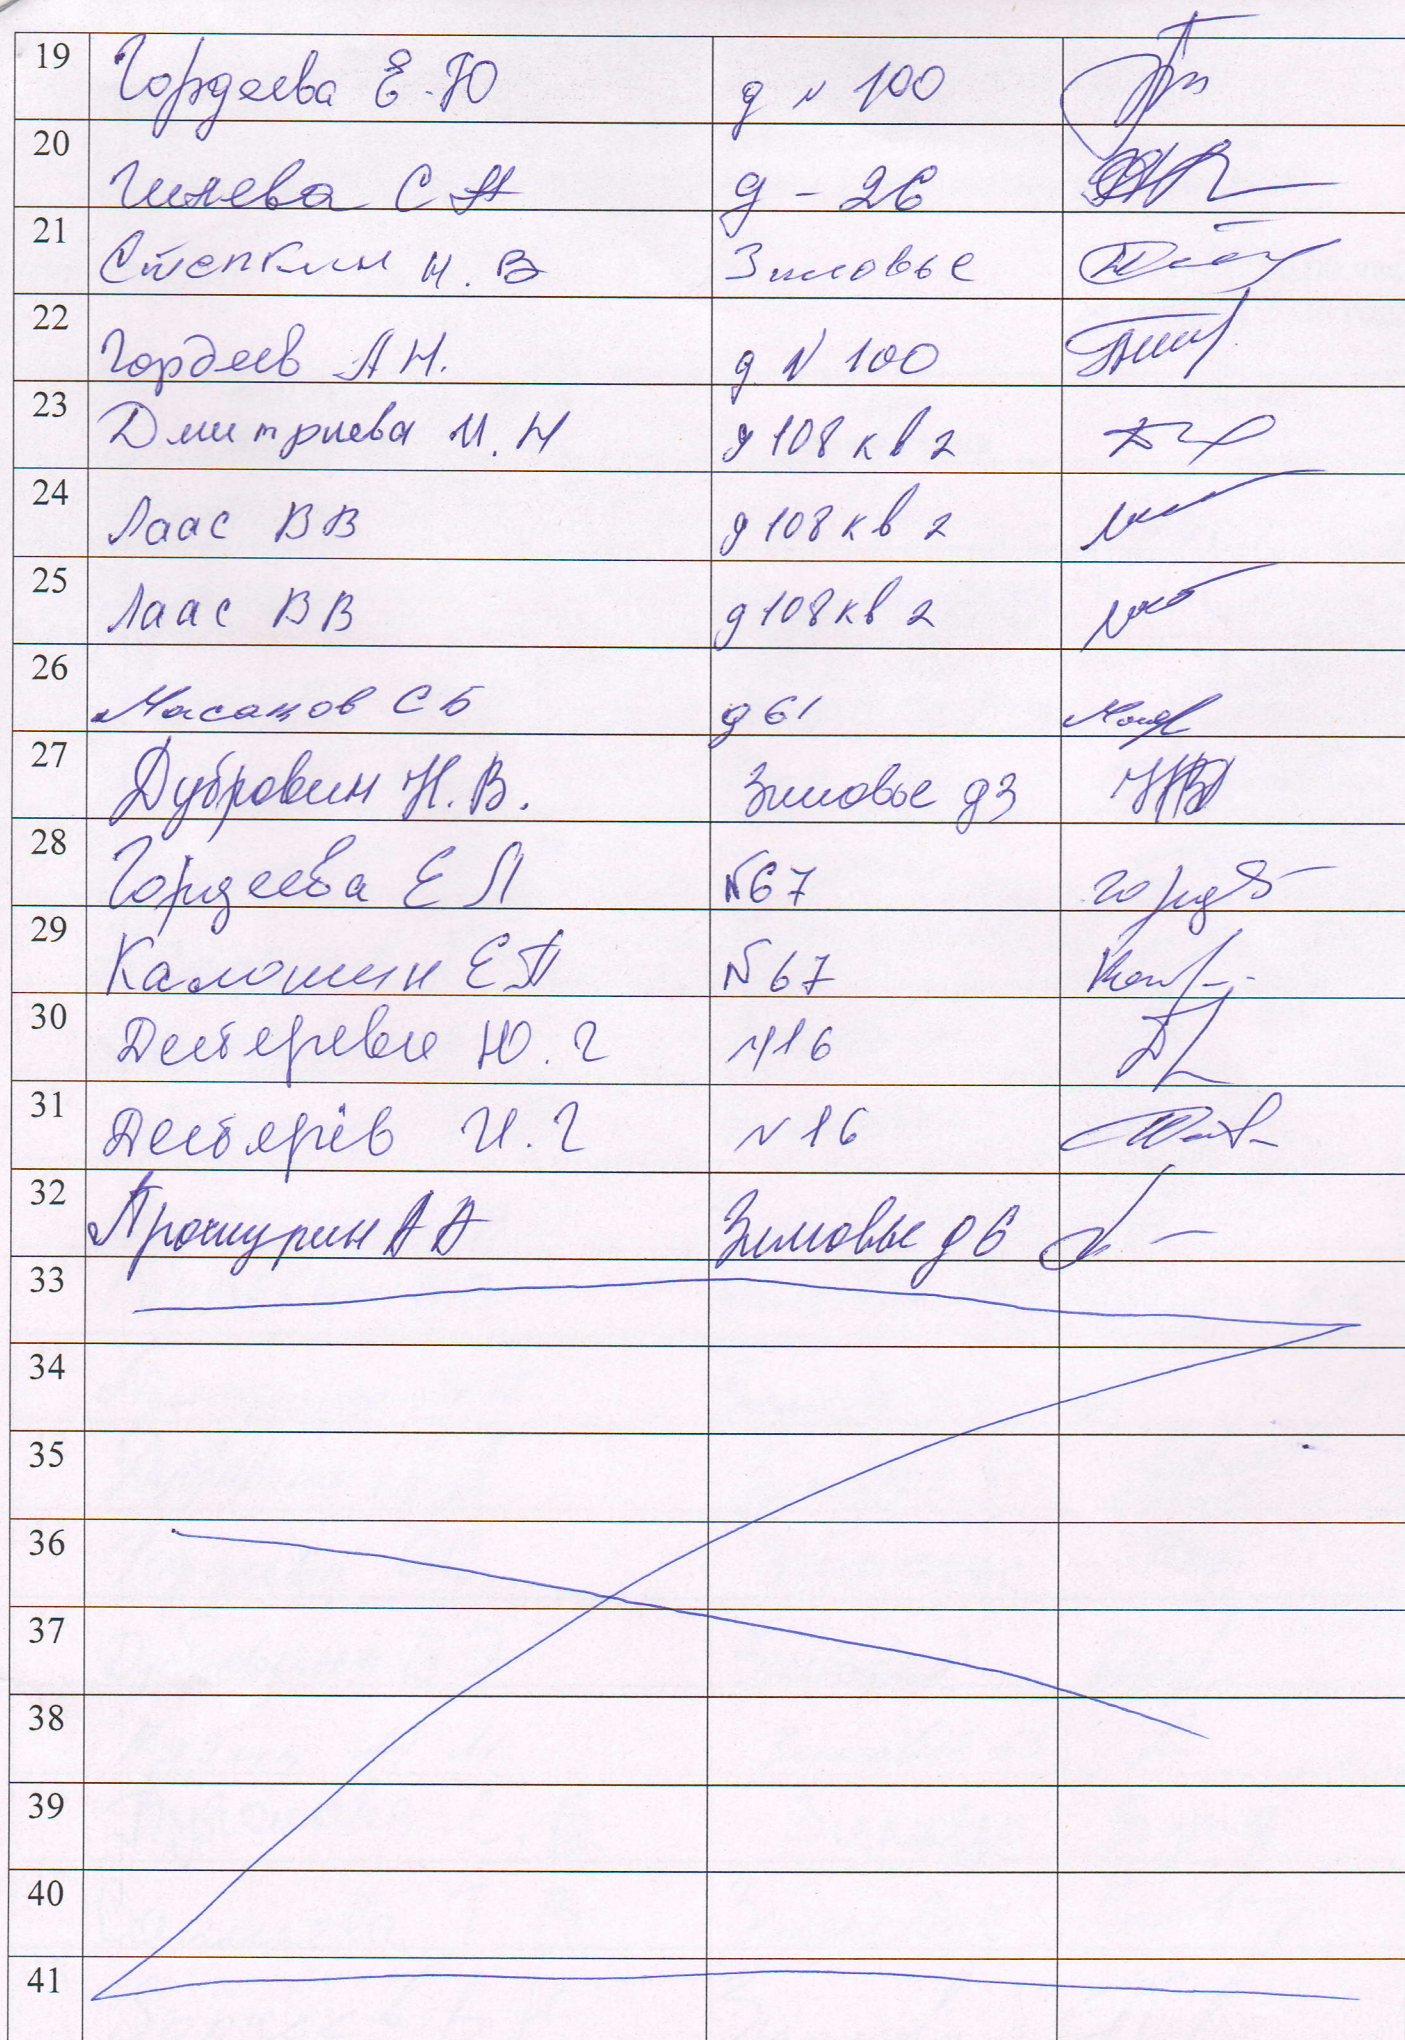 19 Гордеева Е.Ю д № 100
20 С А д - 26
21 Степкин Н. В Зимовье
22 Гордеев А Н. д N 100
23 Дмитриева И. Н д 108 кв 2
24 Лаас В В д 108 кв 2
25 Лаас В В д 108 кв 2
26 Масанов С Б д 61
27 Дубровин Н. В. Зимовье д 3
28 Гордеева Е Л №67
29 Калошин Е П №67
30 Ю. Г №16
31 Дегтярёв И. Г №16
32 Прошурин А А Зимовье д 6
33
34
35
36
37
38
39
40
41